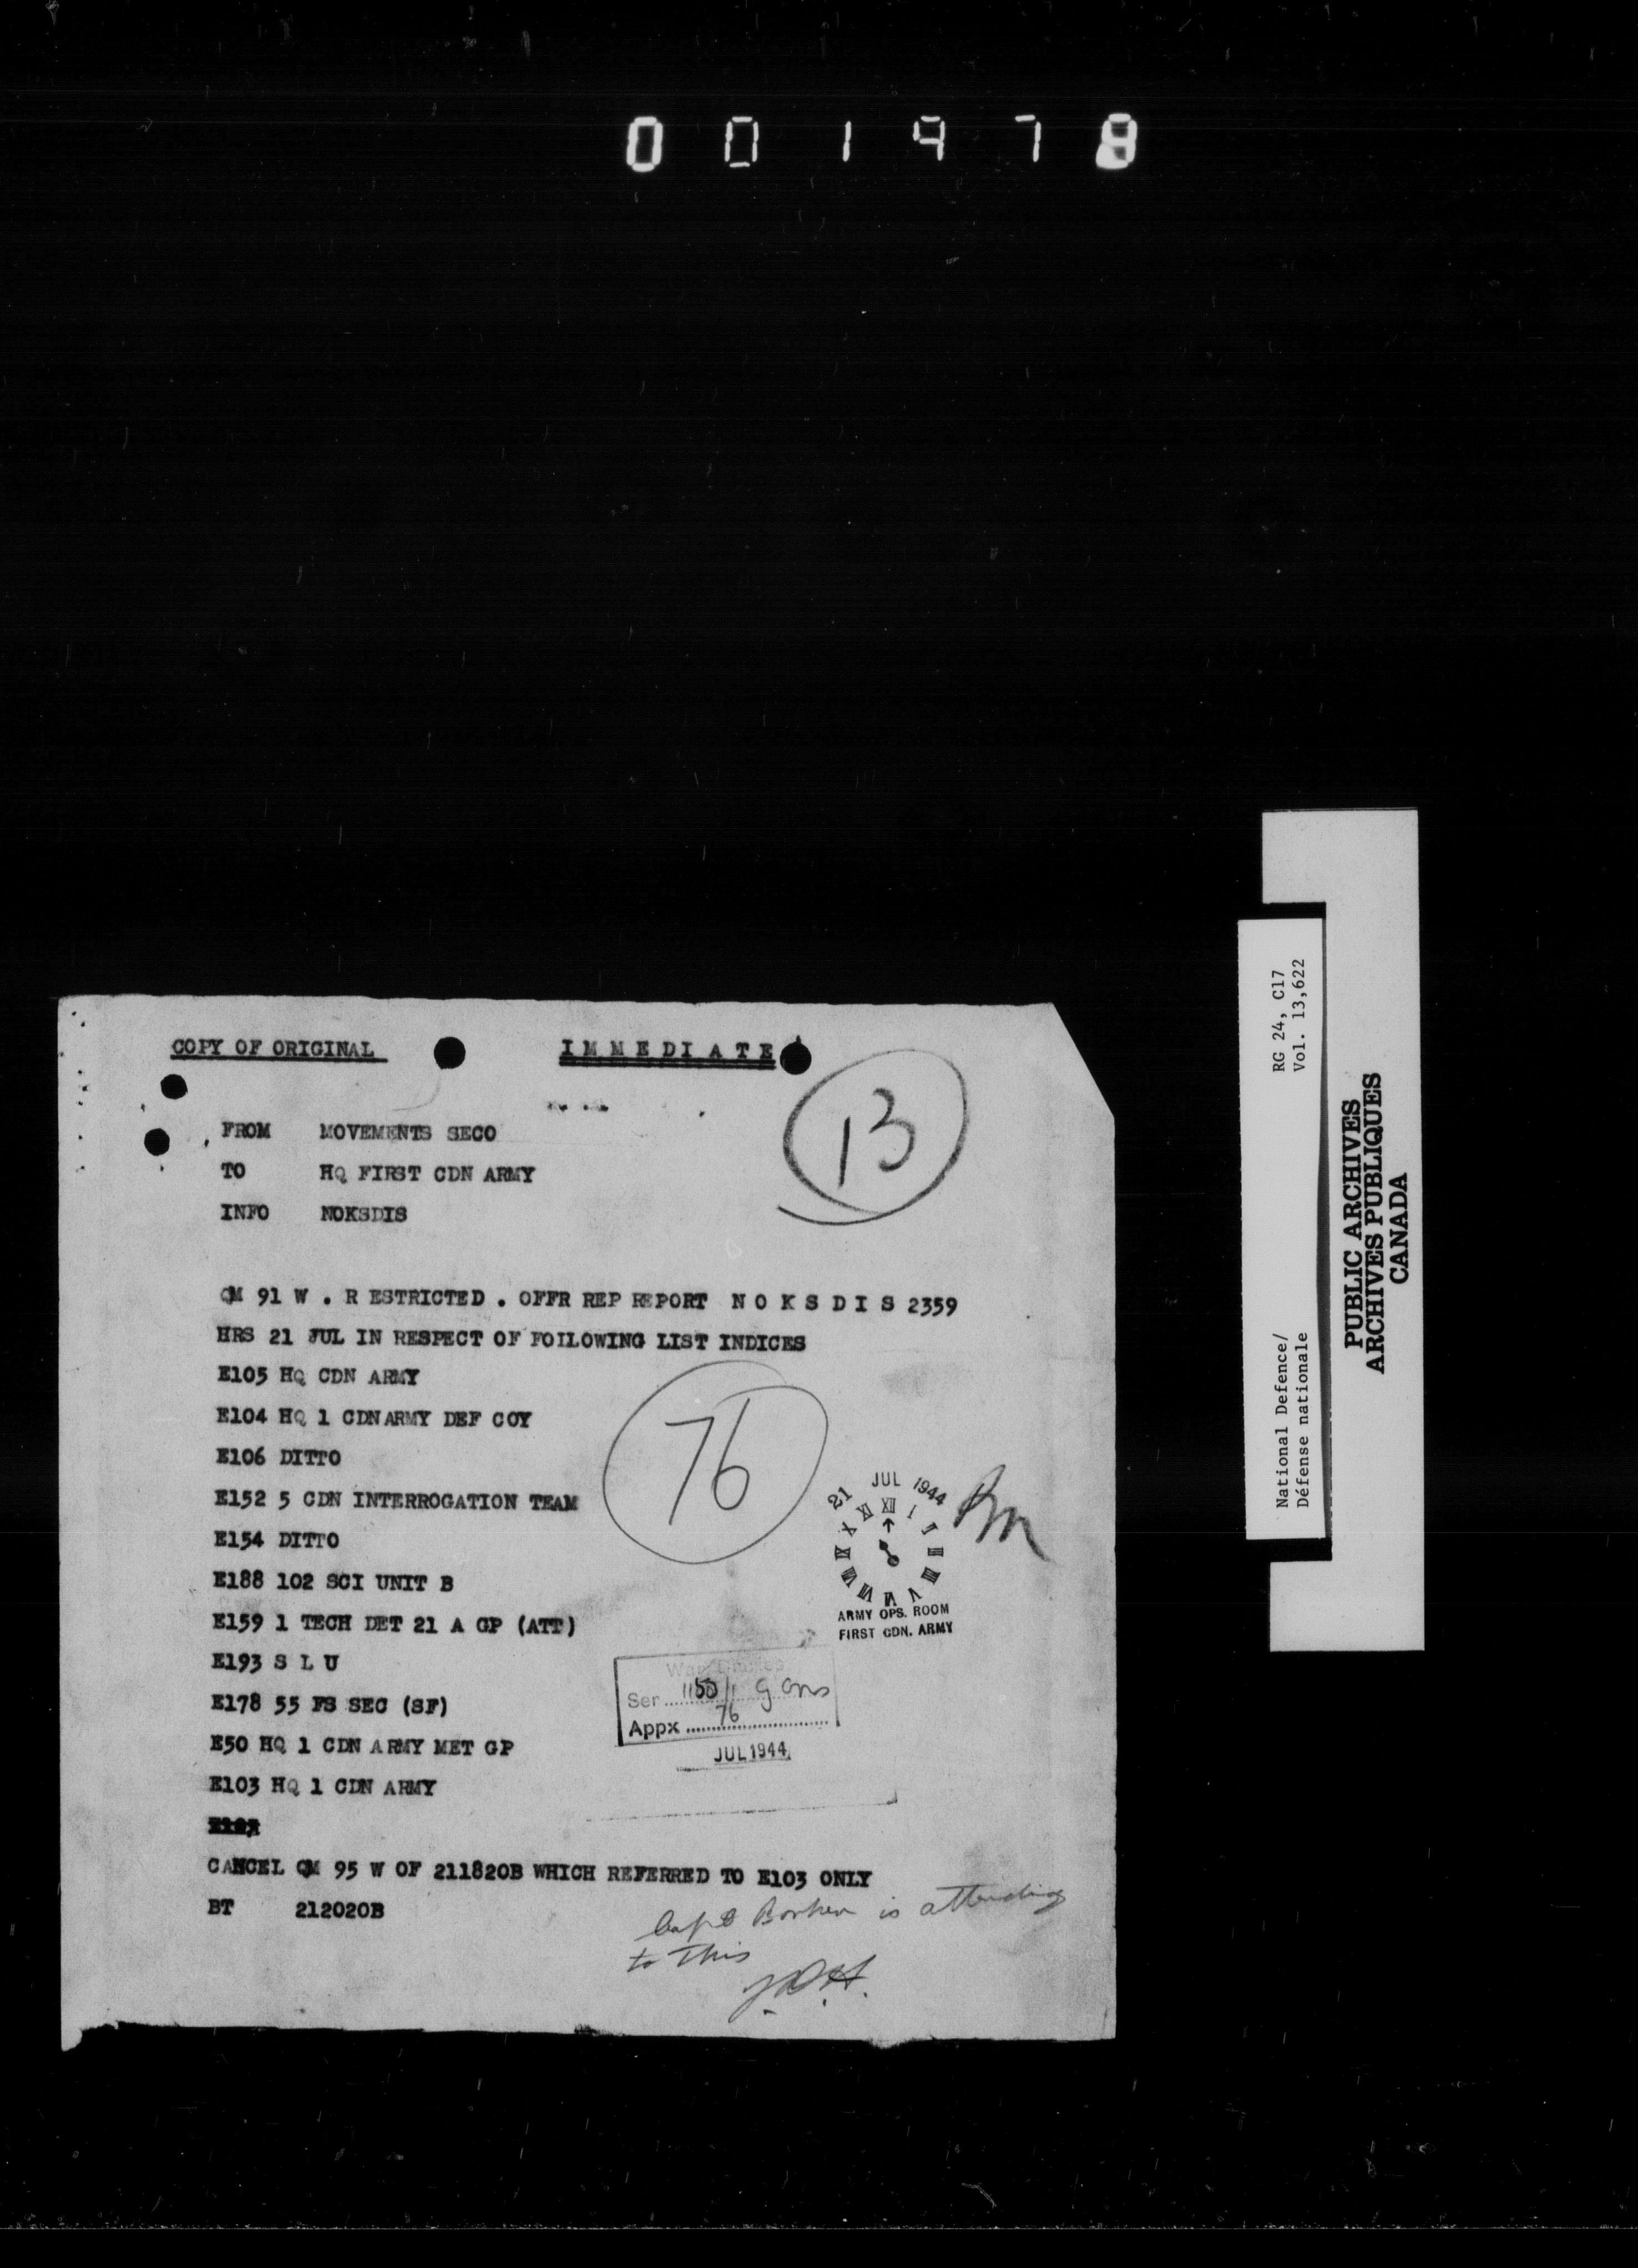 001978
COPY OF ORIGINAL IMMEDIATE
13
FROM MOVEMENTS SECO
TO HQ FIRST CDN ARMY
INFO NOKSDIS
QM 91 W . R ESTRICTED . OFFR REP REPORT N O K S D I S 2359
HRS 21 JUL IN RESPECT OF FOLLOWING LIST INDICES
E105 HQ CDN ARMY
E104 HQ 1 CDNARMY DEF COY
E106 DITTO
E152 5 CDN INTERROGATION TEAM
E154 DITTO
E188 102 SCI UNIT B
E159 1 TECH DET 21 A GP (ATT)
E193 S L U
E178 55 FS SEC (SF)
E50 HQ 1 CDN ARMY MET GP
E103 HQ 1 CDN ARMY
CANCEL QM 95 W OF 211820B WHICH REFERRED TO E103 ONLY
BT 212020B
76
21 JUL 1944
XII I II III IIII V VI VII VIII IX X XI
ARMY OPS. ROOM
FIRST CDN. ARMY
War Diaries
Ser
Appx 76
JUL 1944
is attending
to this
RG 24, C17
Vol. 13,622
National Defence/
Défense nationale
PUBLIC ARCHIVES
ARCHIVES PUBLIQUES
CANADA